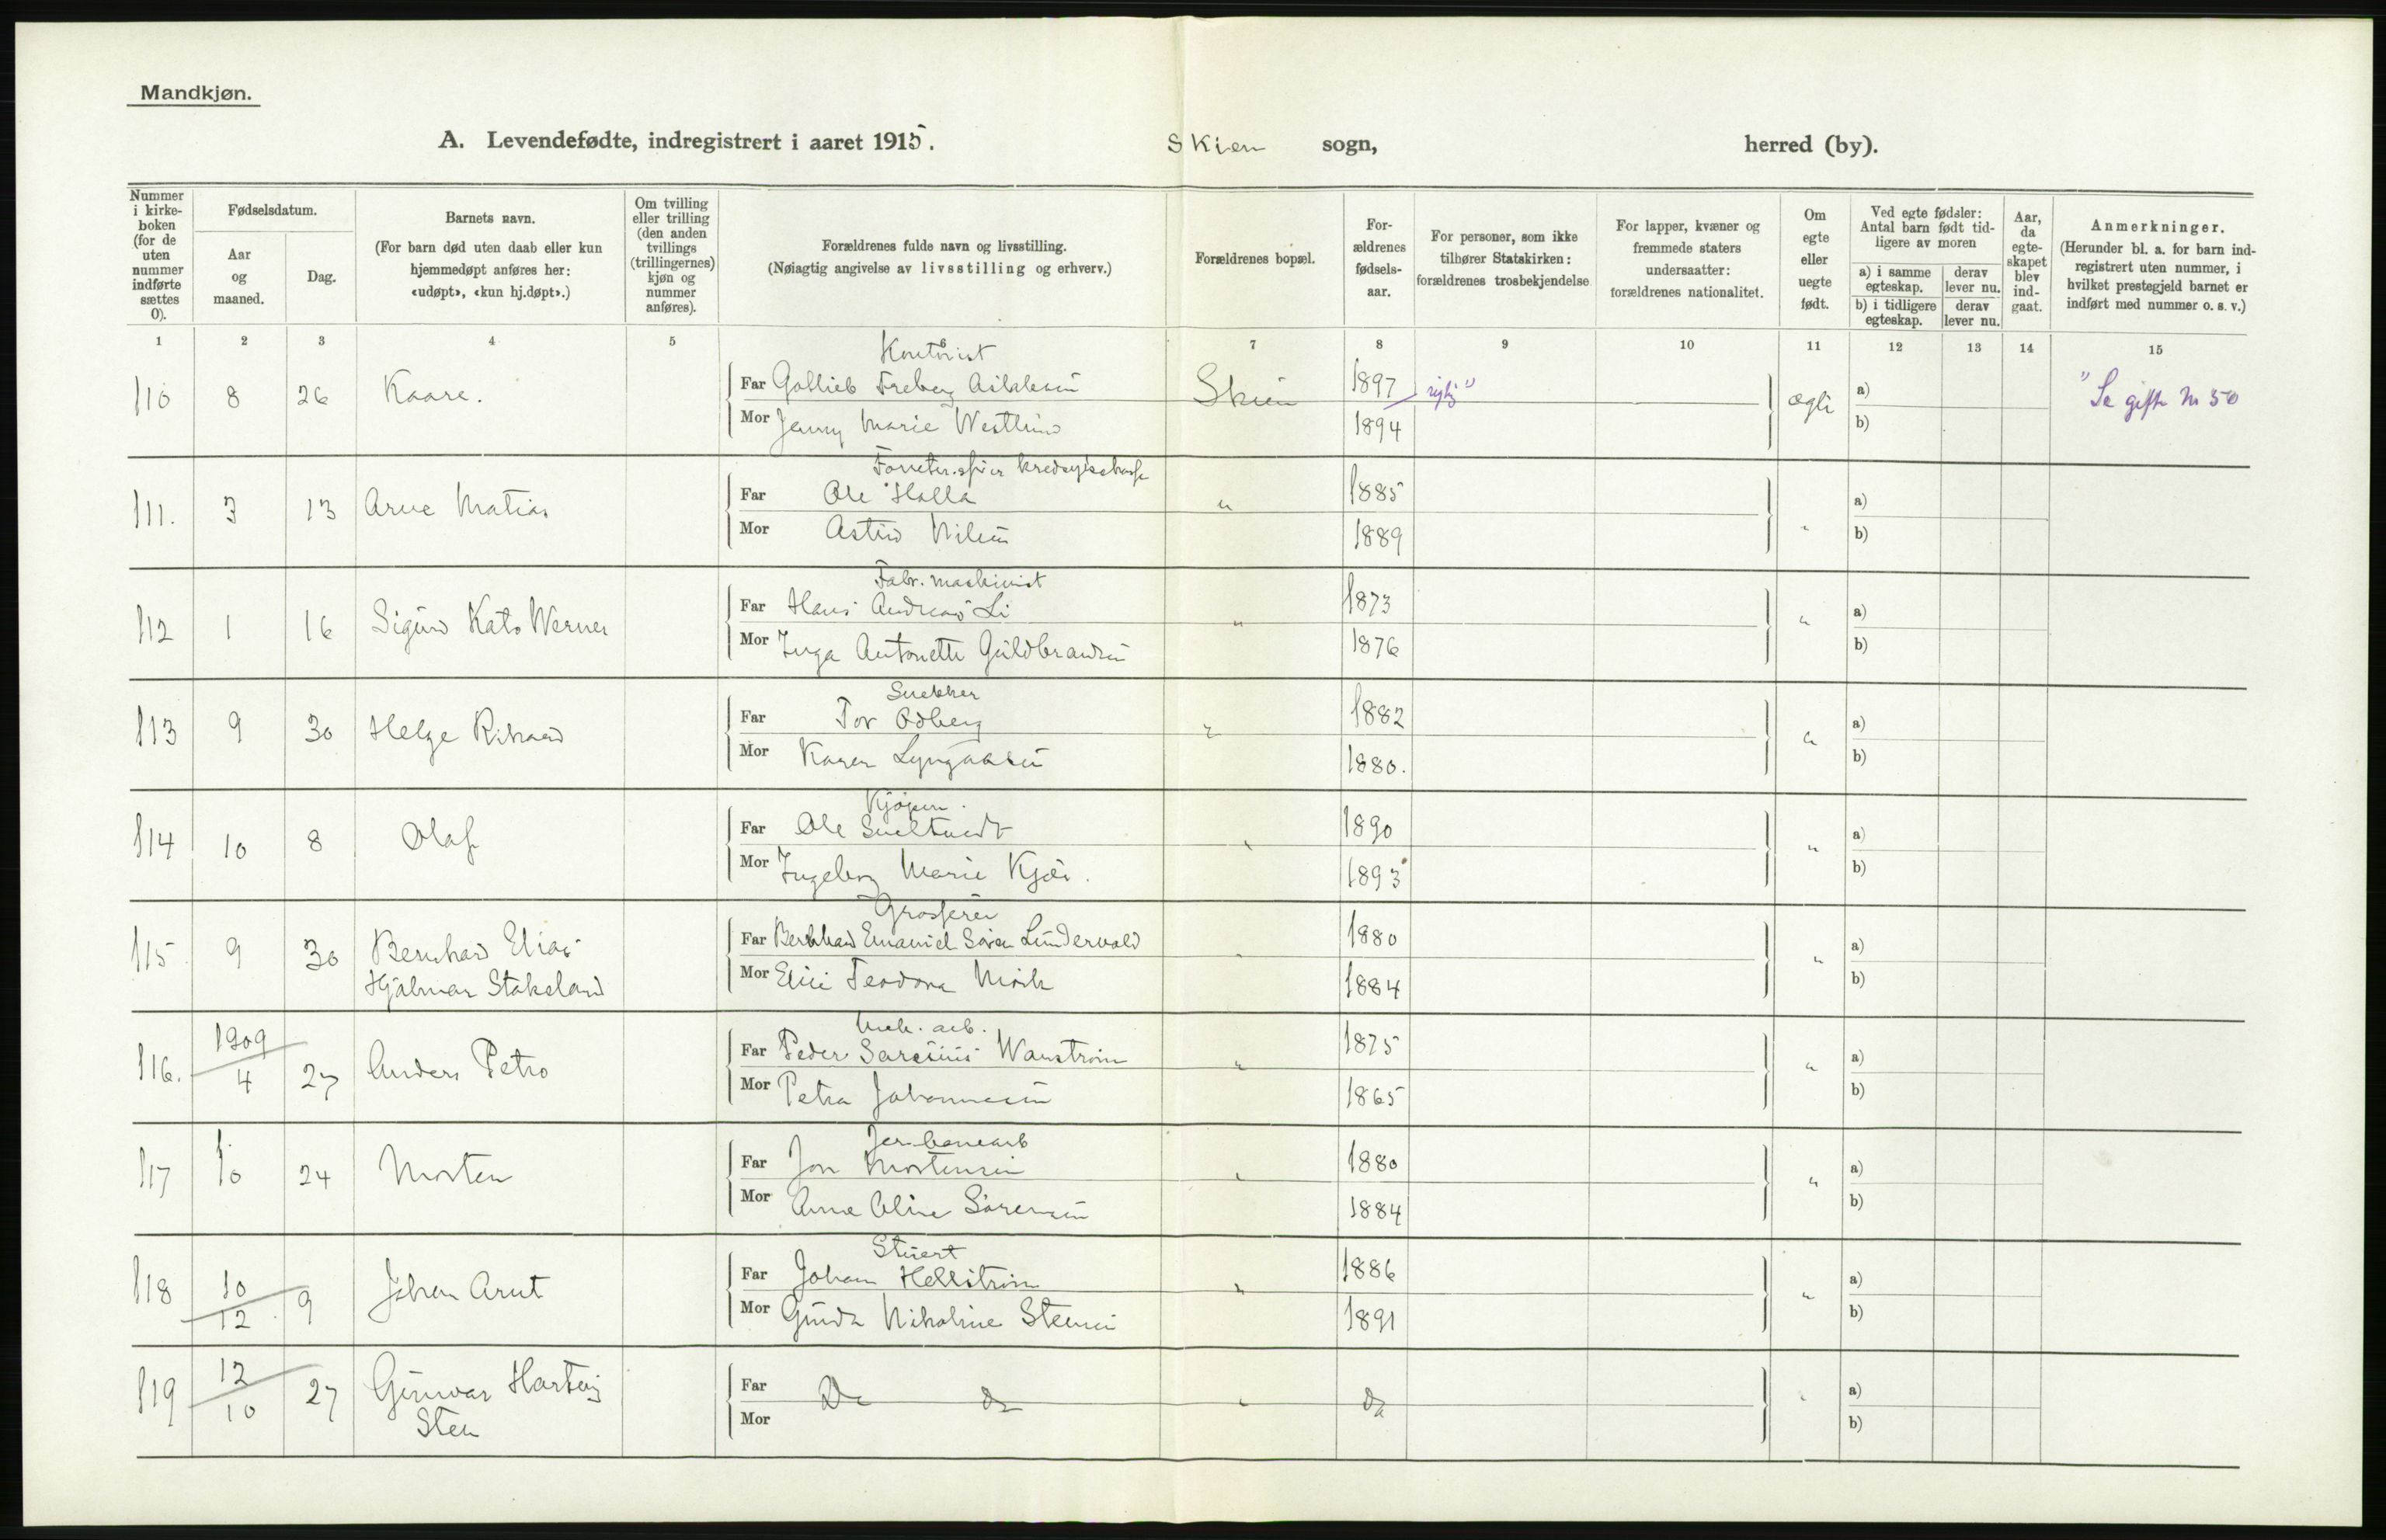 Mandkjøn.
A. Levendefødte, indregistrert i aaret 1915. Skien sogn, herred (by).
Nummer i kirke-boken (for de uten nummer indførte sættes 0).
Fødselsdatum.
Aar og maaned.
Dag.
Barnets navn.
(For barn død uten daab eller kun hjemmedøpt anføres her: «udøpt», «kun hj.døpt».)
Om tvilling eller trilling (den anden tvillings (trillingernes) kjøn og nummer anføres).
Forældrenes fulde navn og livsstilling.
(Nøiagtig angivelse av livsstilling og erhverv.)
Forældrenes bopæl.
For-ældrenes fødsels-aar.
For personer, som ikke tilhører Statskirken: forældrenes trosbekjendelse
For lapper, kvæner og fremmede staters undersaatter: forældrenes nationalitet.
Om egte eller uegte født.
Ved egte fødsler: Antal barn født tid-ligere av moren
a) i samme egteskap. derav lever nu.
b) i tidligere egteskap. derav lever nu.
Aar, da egte-skapet blev ind-gaat.
Anmerkninger.
(Herunder bl. a. for barn ind-registrert uten nummer, i hvilket prestegjeld barnet er indført med nummer o. s. v.)
1 2 3 4 5 7 8 9 10 11 12 13 14 15
Kontorist
110 8 26 Kaare. Far Gottlieb Freberg Skien 1897 rigtig" ægte a) "Se gifte No 50
Mor Jenny Marie Westlund 1894 b)
111. 3 13 Arne Matias Far Ole Holla " 1885 " a)
Mor Astrid Nilsen 1889 b)
Fabr. maskinist
112 1 16 Sigurd Kato Werner Far Hans Andreas Li " 1873 " a)
Mor Inga Antonette Guldbrandsen 1876 b)
Snekker
113 9 30 Helge Rikard Far Tor Odberg " 1882 " a)
Mor Karen 1880. b)
114 10 8 Olaf Far Ole " 1890 " a)
Mor Ingeborg Marie Kjær. 1893 b)
Grosserer
115 9 30 Bernhard Elias Far Bernhard Emanuel Søren Lundervold " 1880 " a)
Hjalmar Stakeland Mor Teodora Mørk 1884 b)
Mek. arb.
116. 1909
4 27 Anders Petro Far Peder Wanstrøm " 1875 " a)
Mor Petra Johannesen 1865 b)
Jernbanearb
117 10 24 Morten Far Jon Mortensen " 1880 " a)
Mor Anne Oline Sørensen 1884 b)
Stuert
118 10
12 9 Johan Arnt Far Johan Hellstrøm " 1886 " a)
Mor Gunda Nikoline Stensen 1891 b)
119 12
10 27 Gunvar Hartvig Far Do do " do " a)
Sten Mor b)